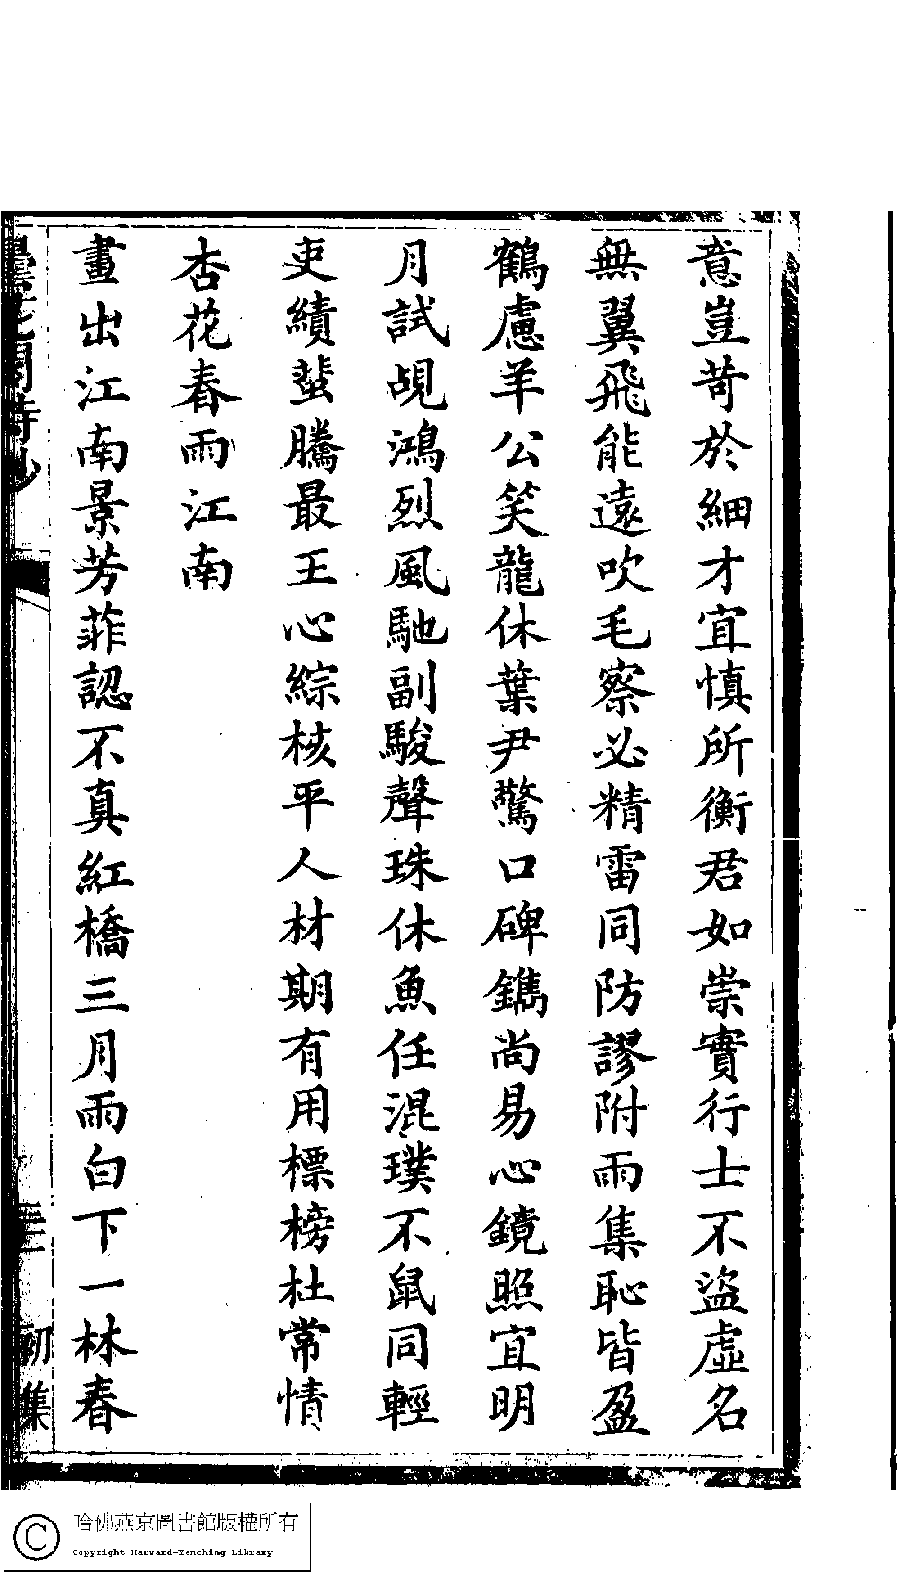 意豈苛於細才宜慎所衡君如崇實行士不盜虛名
無翼飛能遠吹毛察必精雷同防謬附雨集恥皆盈
鶴慮羊公笑龍休葉尹驚口碑鐫尚易心鏡照宜明
月試覘鴻烈風馳副駿聲珠休魚任混璞不鼠同輕
吏績蜚騰最王心綜核平人材期有用標榜杜常情
杏花春雨江南
畫出江南景芳菲認不真紅橋三月雨白下一林春
花間詩鈔
初集
哈佛燕京圖書館版權所有
Copyright Harvard-Yenching Library